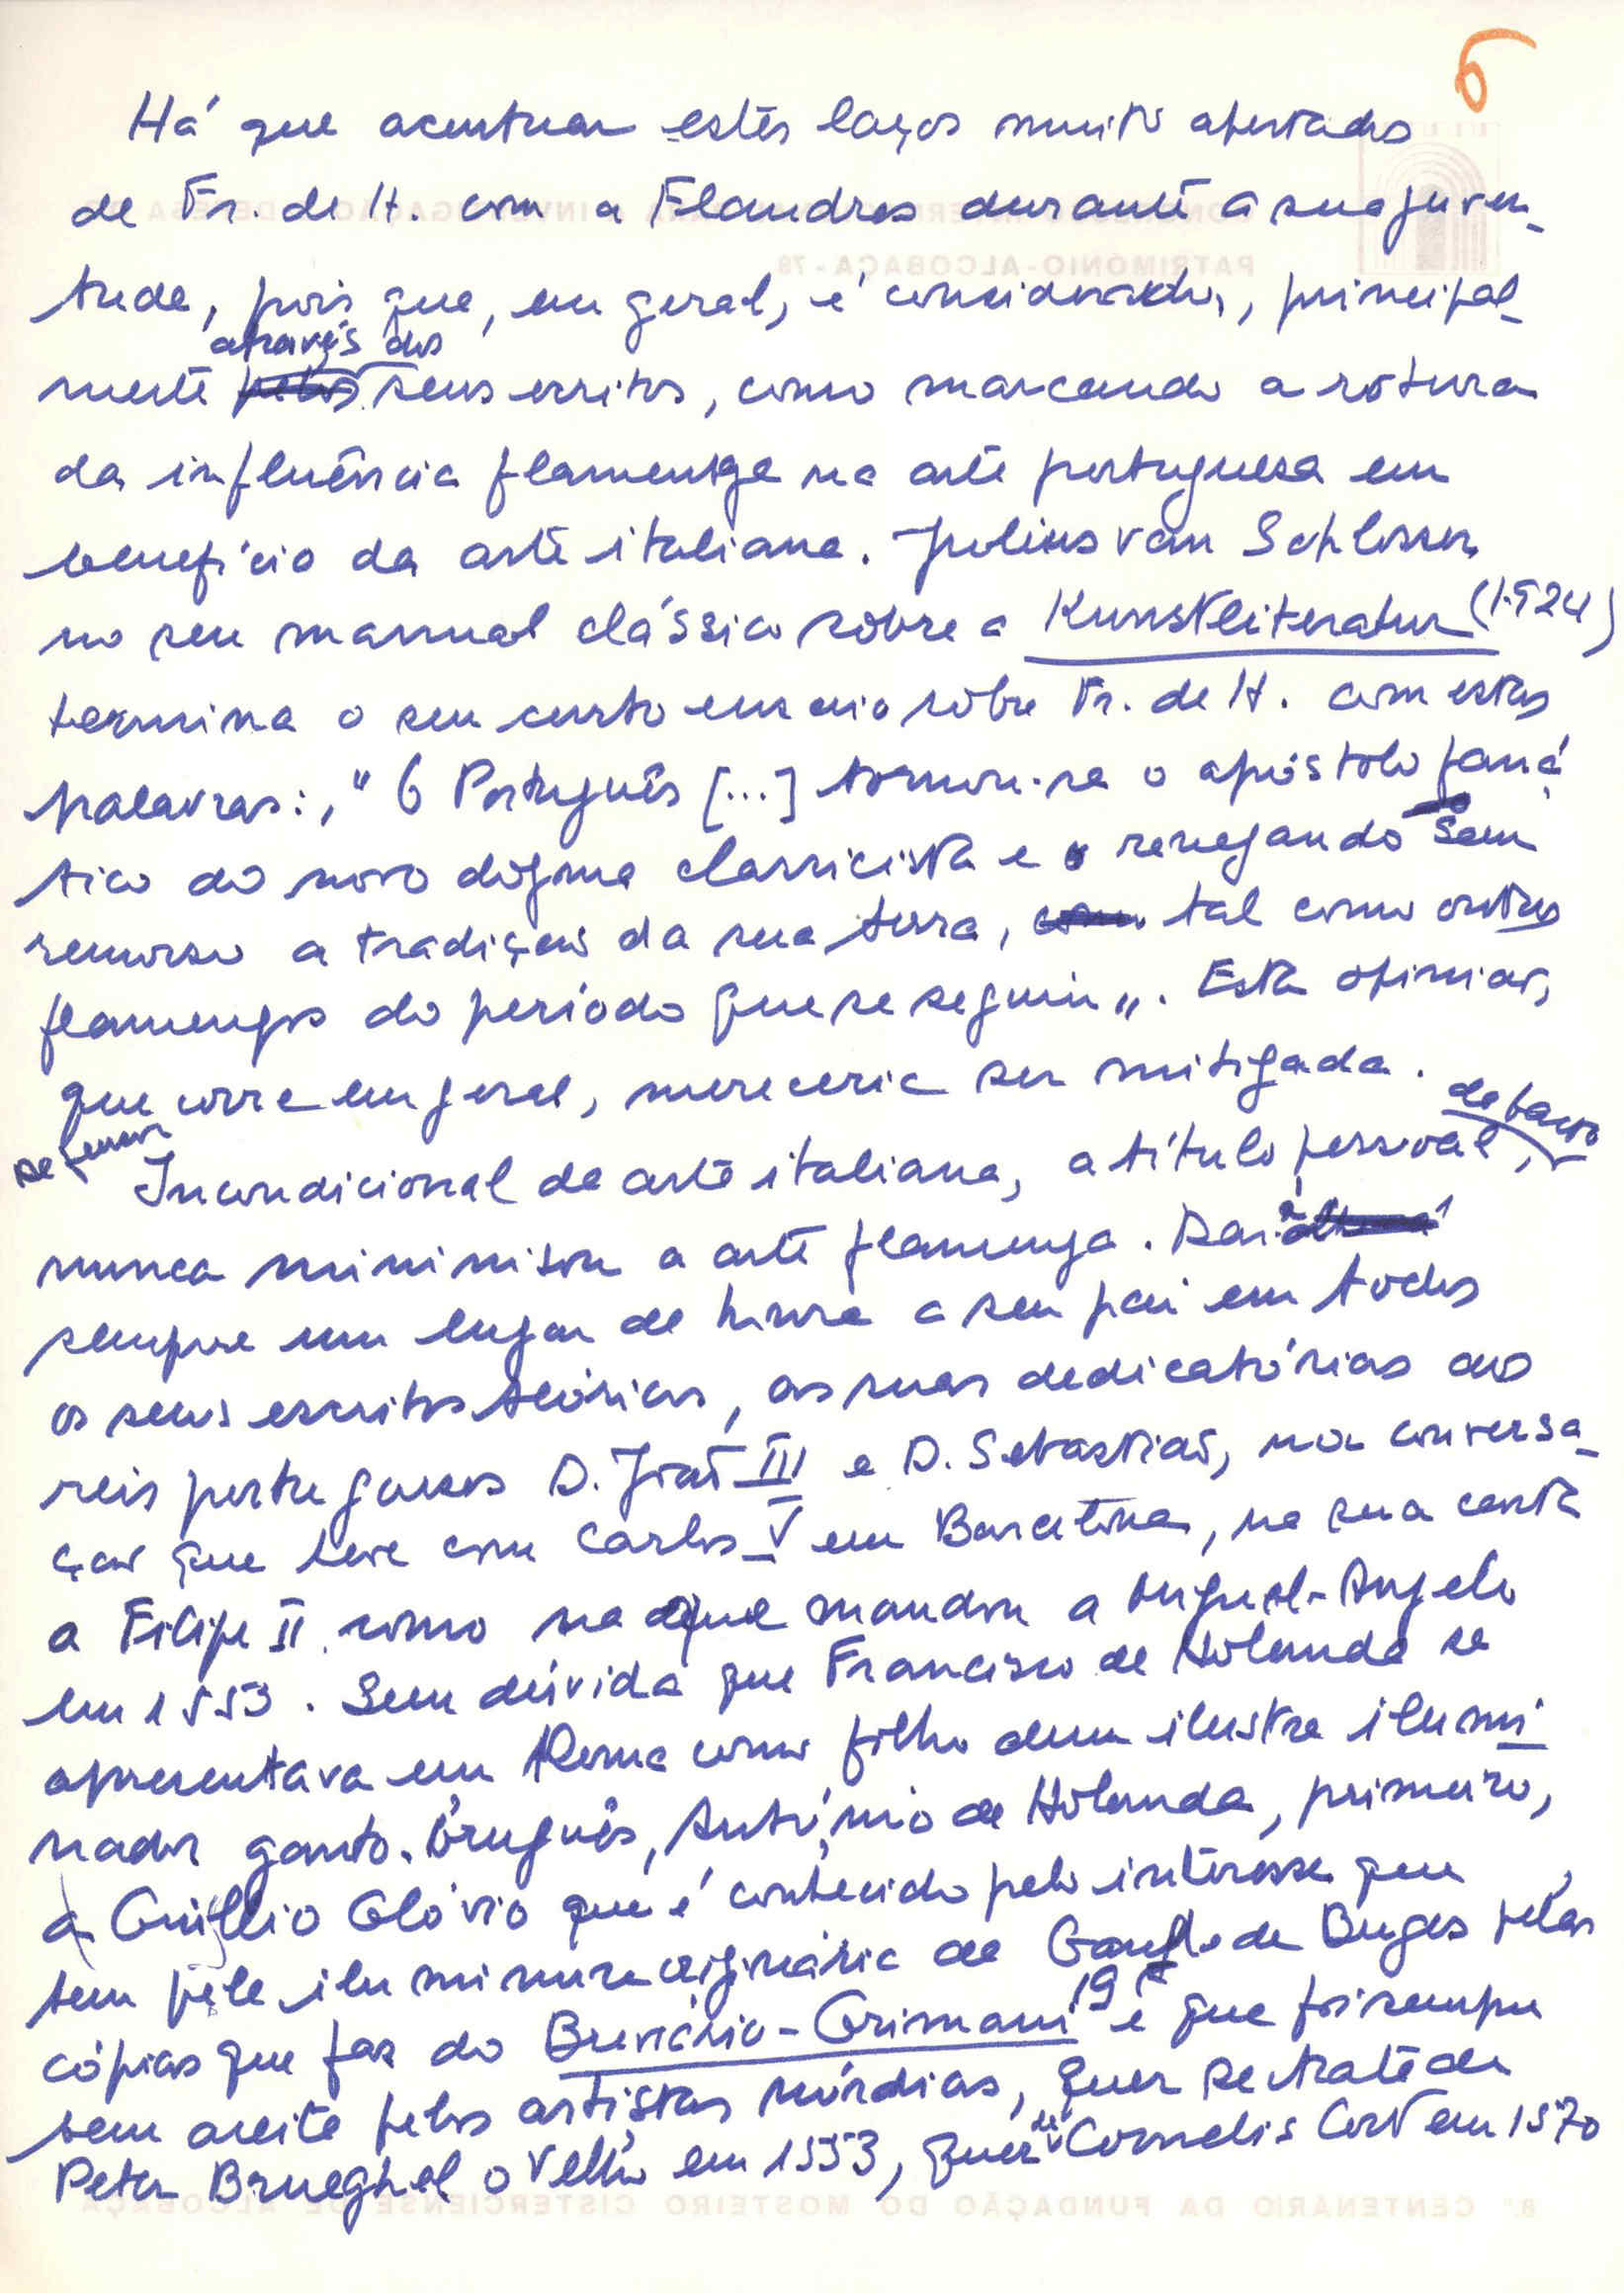 6
Há que acentuar estes laços muito apertados
de Fr. de H. com a Flandres durante a sua juven-
tude, pois que, em geral, é considerado, principal-
através dos
mente pelos seus escritos, como marcando a rotura
da influência flamenga na arte portuguesa em
benefício da arte italiana. Julius van Schlosser
no seu manual clássico sobre a Kunstliteratur (1924)
termina o seu curto ensaio sobre Fr. de H. com estas
palavras: "O Português [...] tornou-se o apóstolo faná
tico do novo dogma classicista e renegando sem
remorso a tradição da sua terra, tal como outros
flamengos do período que se seguiu". Esta opinião,
que corre em geral, mereceria ser mitigada.
Incondicional da arte italiana, a título pessoal,
nunca minimisou a arte flamenga. Dará
sempre um lugar de honra a seu pai em todos
os seus escritos teóricos, as suas dedicatórias aos
reis portugueses D. João III e D. Sebastião, na conversa-
ção que teve com Carlos V em Barcelona, na sua carta
a Filipe II como na que mandou a Miguel-Angelo
em 1553. Sem dúvida que Francisco de Holanda se
apresentava em Roma como filho dum ilustre ilumi
nador ganto-bruguês, António de Holanda, primeiro,
a Giullio Clóvio que é conhecido pelo interesse que
tem pela iluminura originária de Gand e de Bruges pelas
cópias que faz do Breviário-Grimani 19 e que foi sempre
bem aceite pelos artistas nórdicos, quer se trate de
Peter Brueghel o Velho em 1553, quer de Cornelis Cort em 1570
PATRIMÓNIO-ALCOBAÇA-78
8.º CENTENÁRIO DA FUNDAÇÃO DO MOSTEIRO CISTERCIENSE DE ALCOBAÇA